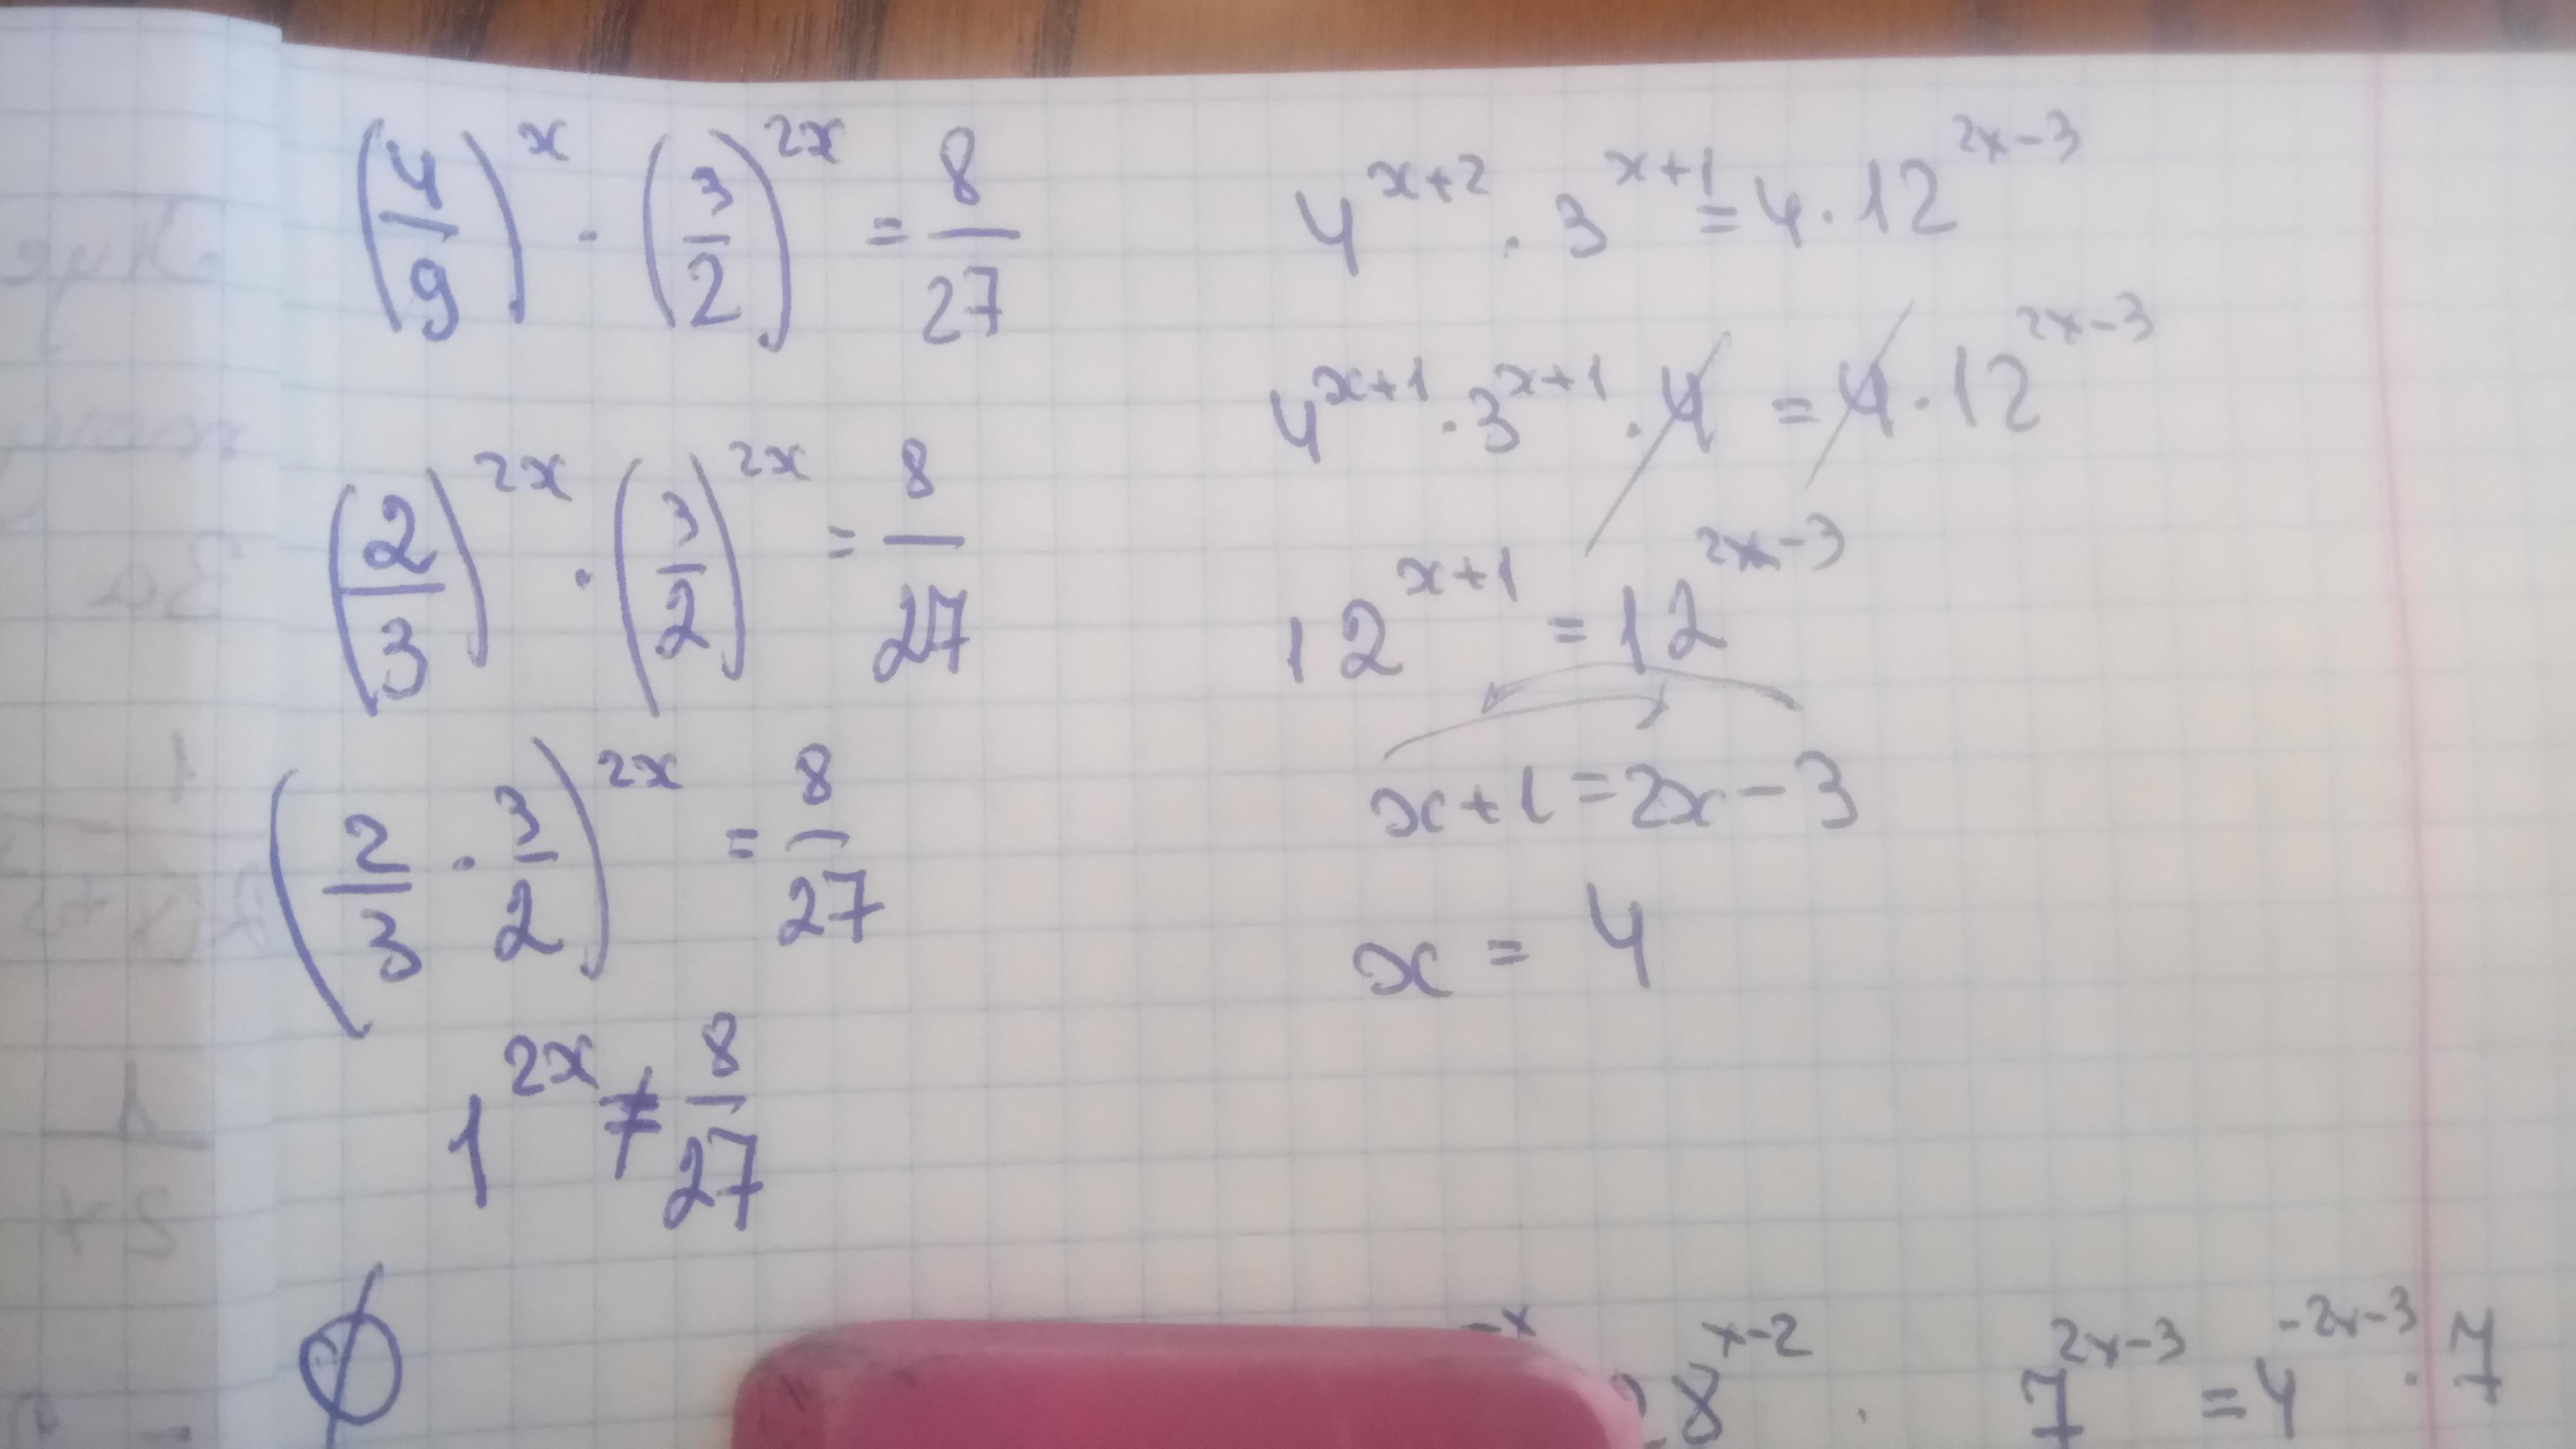 (4/9)^x · (3/2)^2x = 8/27
(2/3)^2x · (3/2)^2x = 8/27
(2/3 · 3/2)^2x = 8/27
1^2x ≠ 8/27
∅
4^x+2 · 3^x+1 = 4 · 12^2x-3
4^x+1 · 3^x+1 · 4 = 4 · 12^2x-3
12^x+1 = 12^2x-3
x+1=2x-3
x = 4
-x 8^x-2 · 7^2x-3 = 4^-2x-3 · 7